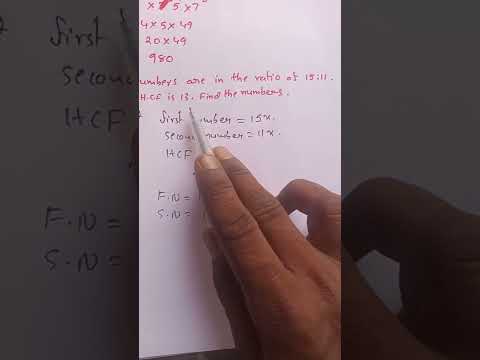 5 x 7
4 x 5 x 49
20 x 49
980
umbers are in the ratio of 15:11.
H.CF is 13. Find the numbers.
first number = 15x.
Second number = 11x.
HCF
F.N =
S.N =